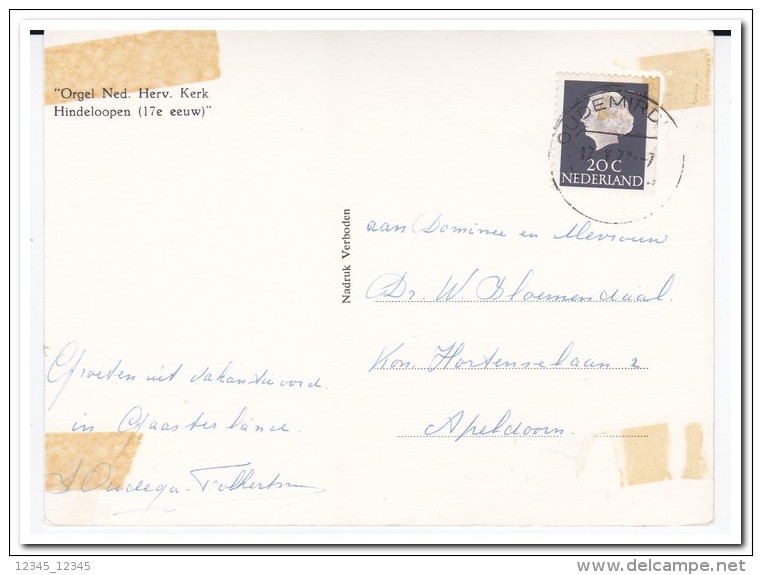 "Orgel Ned. Herv. Kerk
Hindeloopen (17e eeuw)"
OUDEMIRD
17 V 72
20 C
NEDERLAND
Nadruk Verboden
aan Dominee en Mevrouw
Dr. W Bloemendaal.
Kon. Hortenselaan 2
Apeldoorn.
Groeten uit vakantieoord
in Gaasterland.
Oudega-Folkertsma
12345_12345
www.delcampe.net